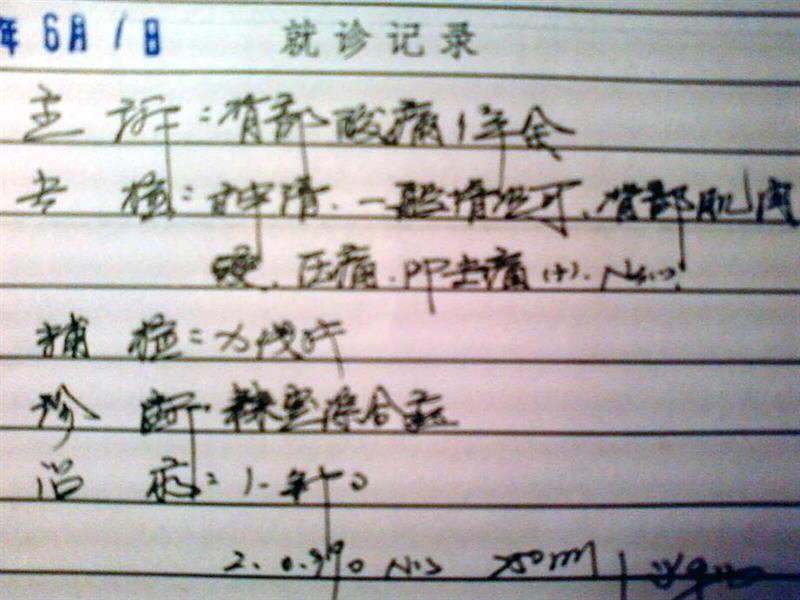 年6月1日 就诊记录
主诉:背部酸痛1年余
查 检:神清.一般情况可.背部肌肉
硬.压痛.叩击痛(+).
辅检:X线片
诊断:棘突综合症
治疗:1.
2. 0.9% N.S 250ml